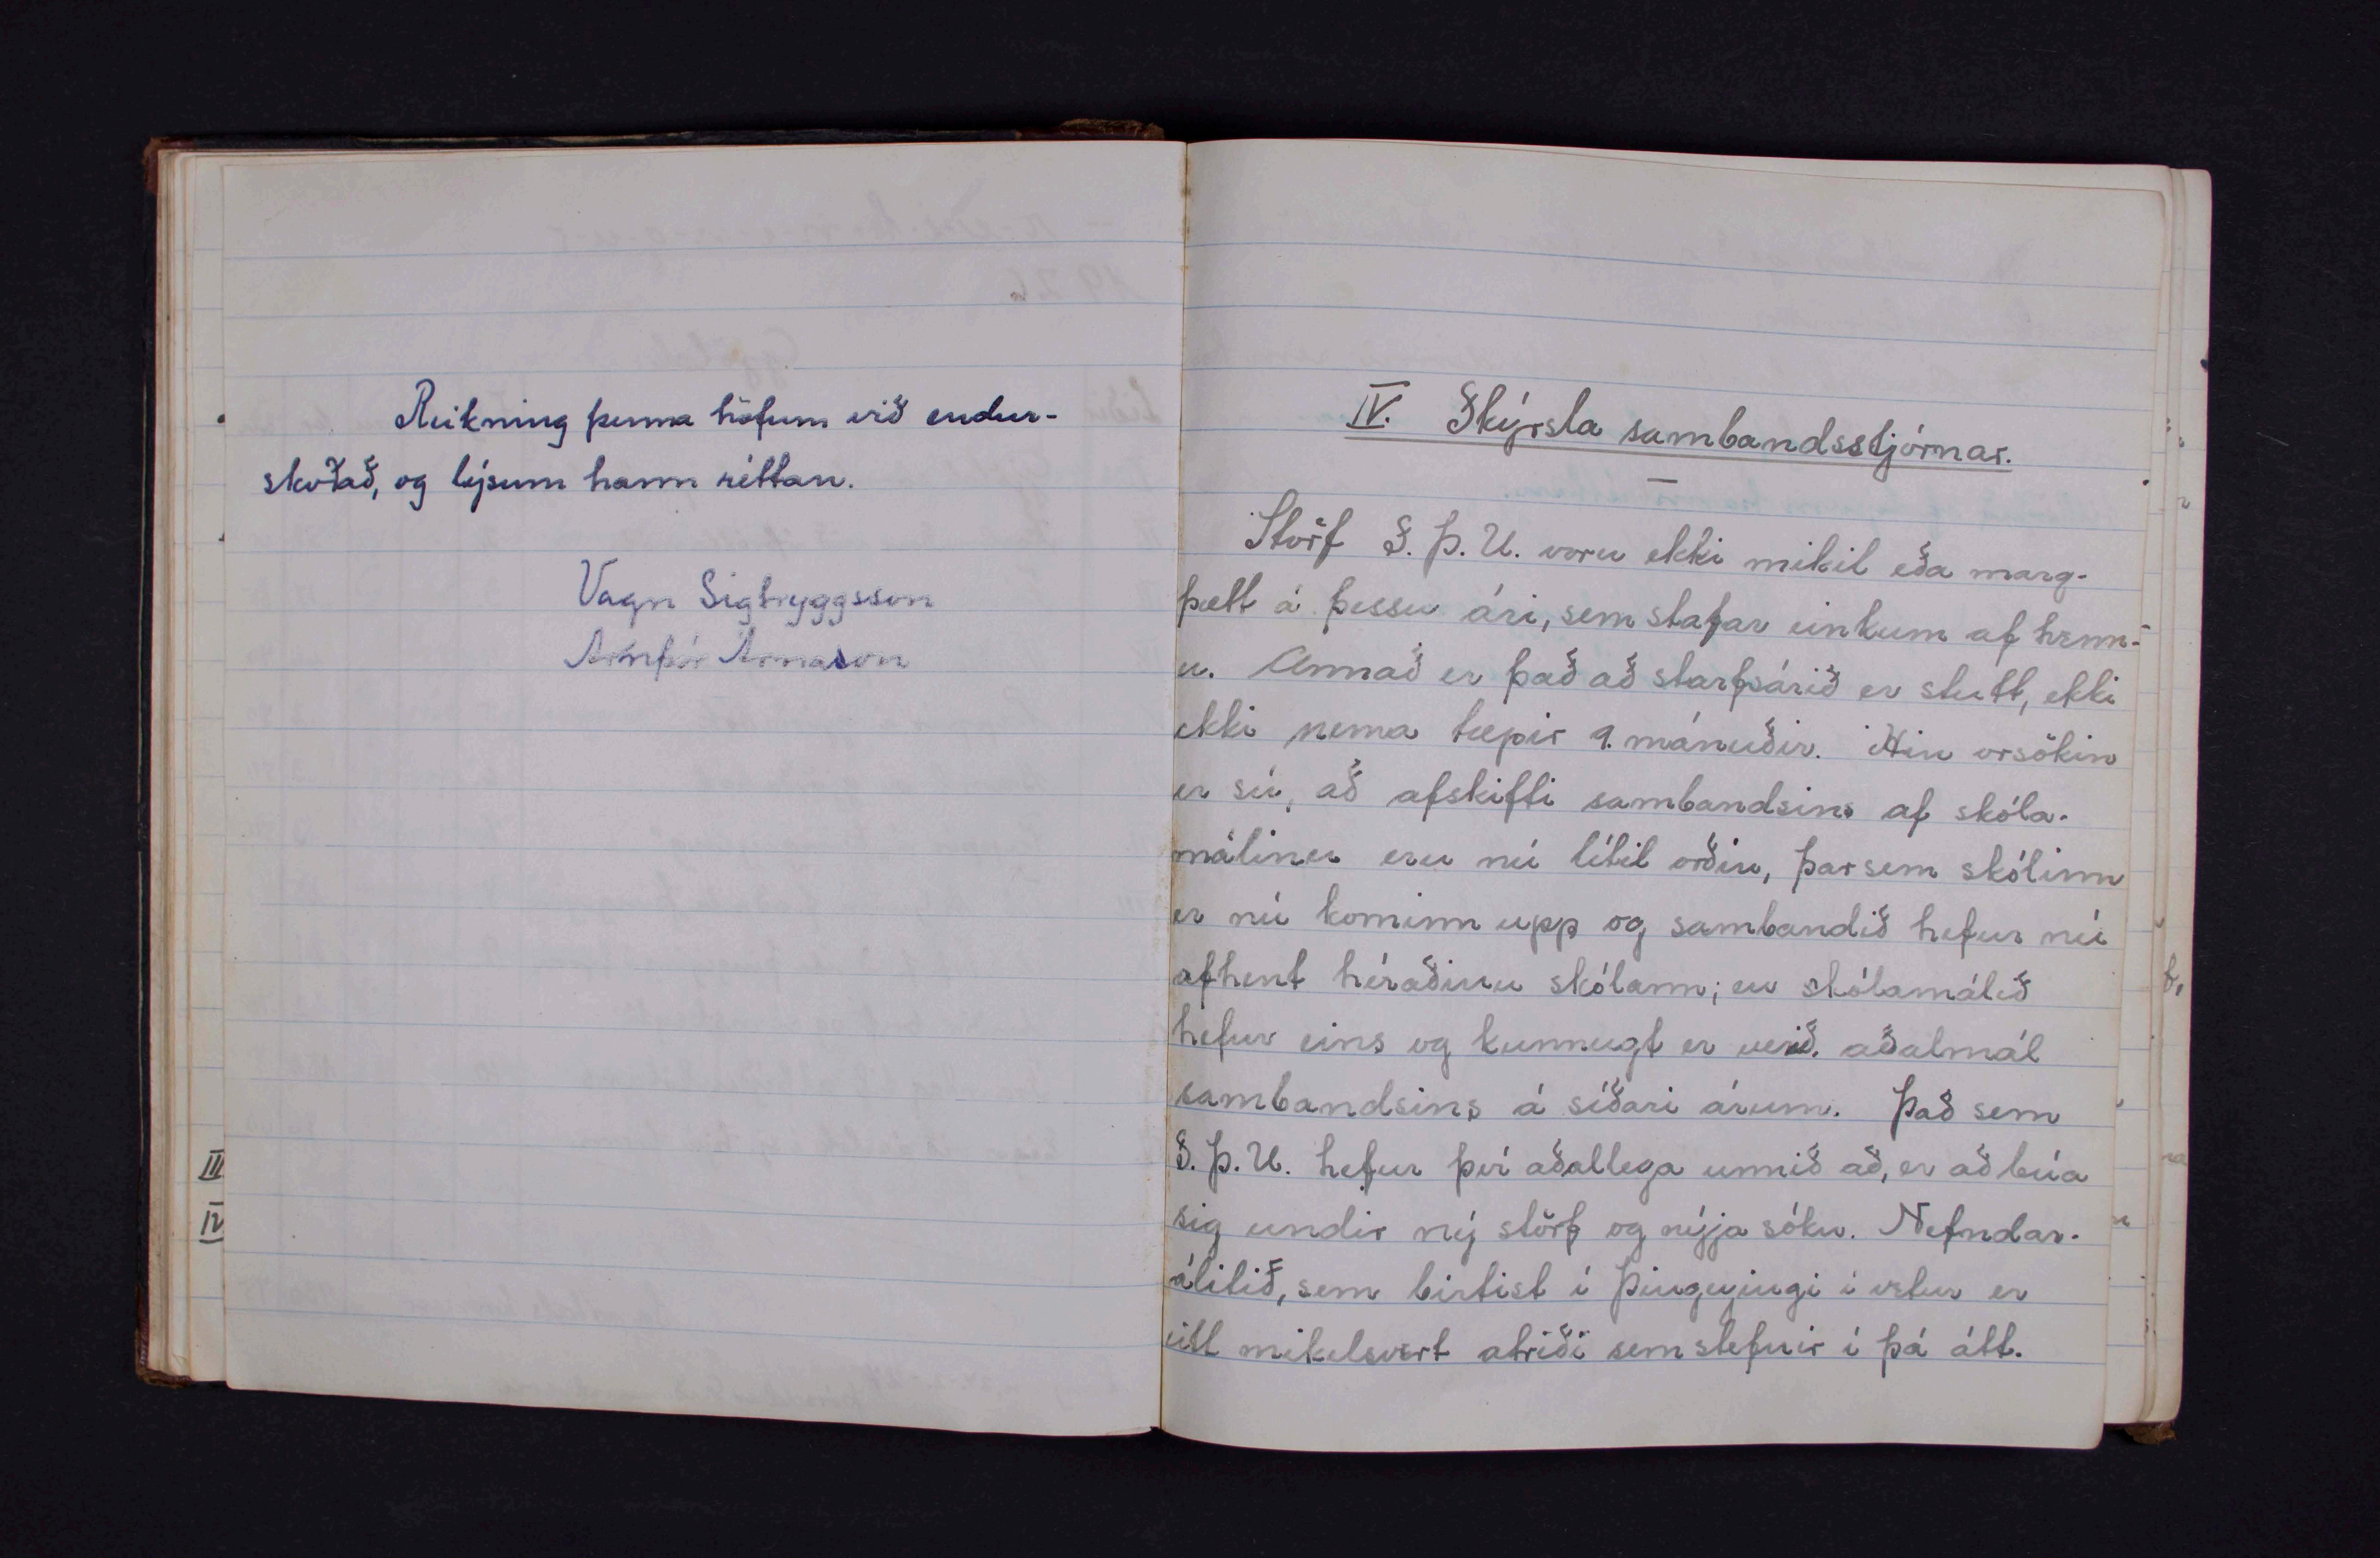 Reikning þenna höfum við endur-
skoðað, og lýsum hann réttan.
Vagn Sigtryggsson
Arnþór Árnason
III
IV
IV. Skýrsla sambandsstjórnar.
Störf S. Þ. U. voru ekki mikil eða marg-
þætt á þessu ári, sem stafar einkum af tvenn-
u. Annað er það að starfsárið er stutt, ekki
ekki nema tæpir 9. mánuðir. Hin orsökin
er sú, að afskifti sambandsins af skóla-
málinu eru nú lítil orðin, þar sem skólinn
er nú kominn upp og sambandið hefur nú
afhent héraðinu skólann; en skólamálið
hefur eins og kunnugt er verið aðalmál
sambandsins á síðari árum. Það sem
S. Þ. U. hefur því aðallega unnið að, er að búa
sig undir ný störf og nýja sókn. Nefndar-
álitið, sem birtist í Þingeyingi í vetur er
eitt mikelsvert atriði sem stefnir í þá átt.